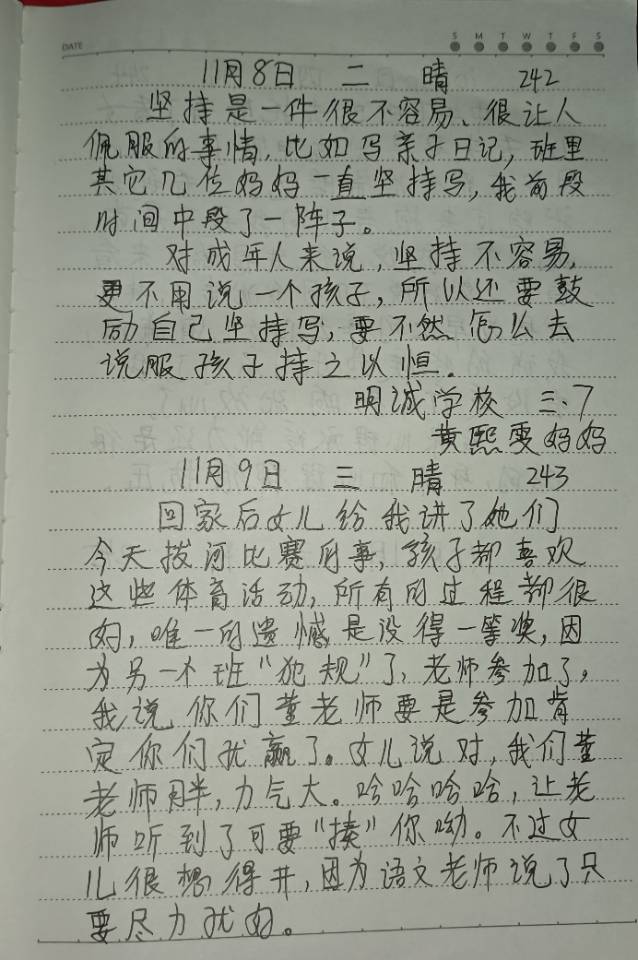 DATE
S M T W T F S
11月8日 二 晴 242
坚持是一件很不容易、很让人
佩服的事情,比如写亲子日记,班里
其它几位妈妈一直坚持写,我前段
时间中段了一阵子。
对成年人来说,坚持不容易,
更不用说一个孩子,所以还要鼓
励自己坚持写,要不然怎么去
说服孩子持之以恒。
明诚学校 三.7
黄熙雯妈妈
11月9日 三 晴 243
回家后女儿给我讲了她们
今天拔河比赛的事,孩子都喜欢
这些体育活动,所有的过程都很
好,唯一的遗憾是没得一等奖,因
为另一个班“犯规”了,老师参加了,
我说你们董老师要是参加肯
定你们就赢了。女儿说对,我们董
老师胖,力气大。哈哈哈哈,让老
师听到了可要“揍”你呦。不过女
儿很想得开,因为语文老师说了只
要尽力就好。